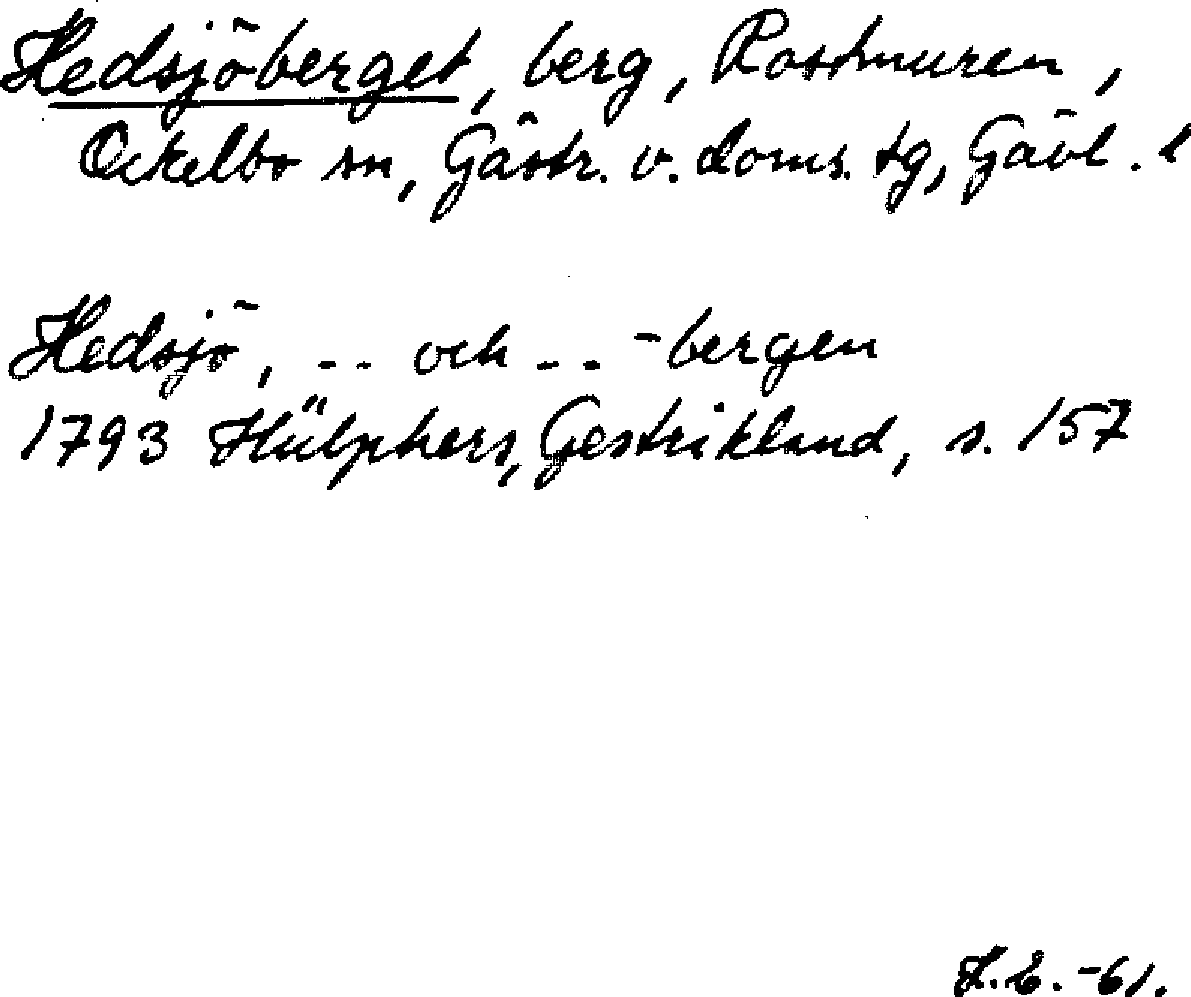 Hedsjöberget, berg, Rostmuren,
Ockelbo sn, Gästr. v. doms. tg, Gävl. l
Hedsjö, -- och -- -bergen
1793 Hülphers, Gestrikland, s. 157
H.E. -61.